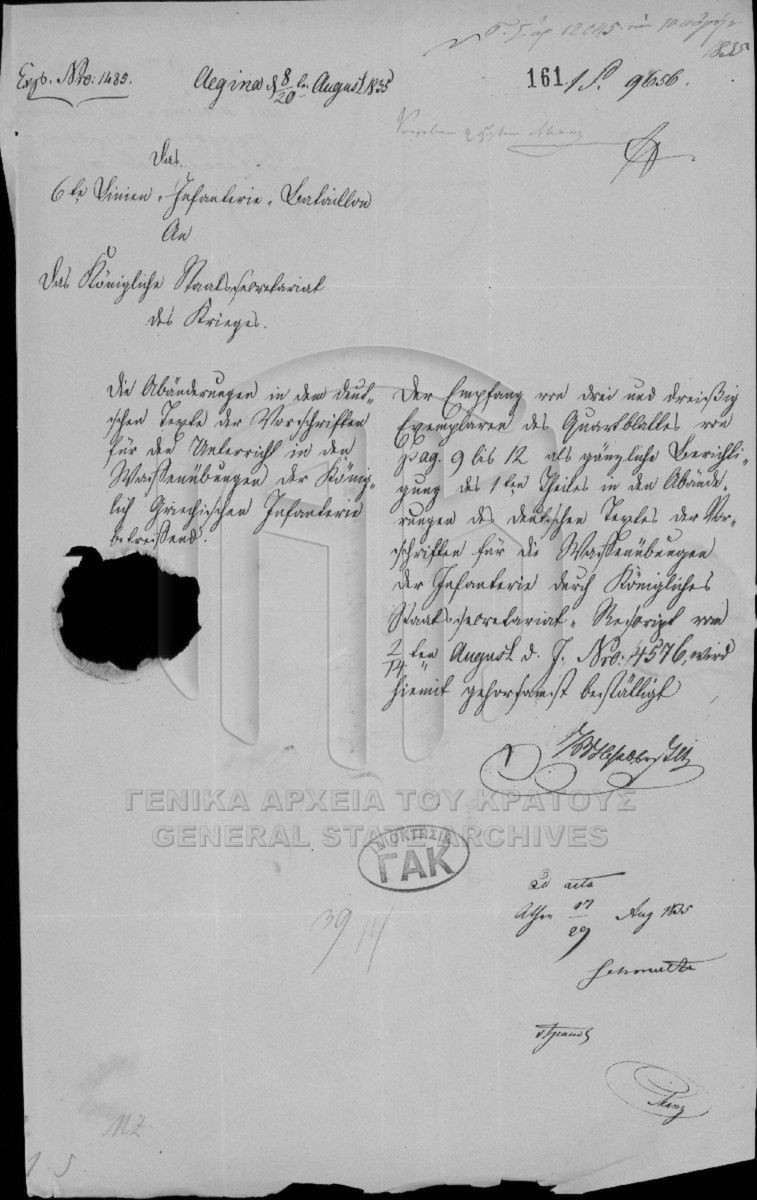 12045
1835
Exp. Nro: 1485.
Aegina d 8/20 ten August 1835
161. 9656.
Das
6te Linien-Infanterie-Bataillon
An
Das Königliche Staatssecretariat
des Krieges.
Die Abänderungen in dem deut-
schen Texte der Vorschriften
für den Unterricht in den
Waffenübungen der König-
lich Griechischen Infanterie
betreffend.
Der Empfang von drei und dreißig
Exemplaren des Quartblattes von
pag. 9 bis 12 als gänzliche Berichti-
gung des 1ten Theiles in den Abände-
rungen des deutschen Textes der Vor-
schriften für die Waffenübungen
der Infanterie durch Königliches
Staatssecretariat-Rescript vom
2/14 ten August d. J. Nro: 14576, wird
hiemit gehorsamst bestättigt
ΓΕΝΙΚΑ ΑΡΧΕΙΑ ΤΟΥ ΚΡΑΤΟΥΣ
GENERAL STATE ARCHIVES
ΙΔΙΟΚΤΗΣΙΑ
ΓΑΚ
ad acta
Athen 17/29 Aug 1835
39